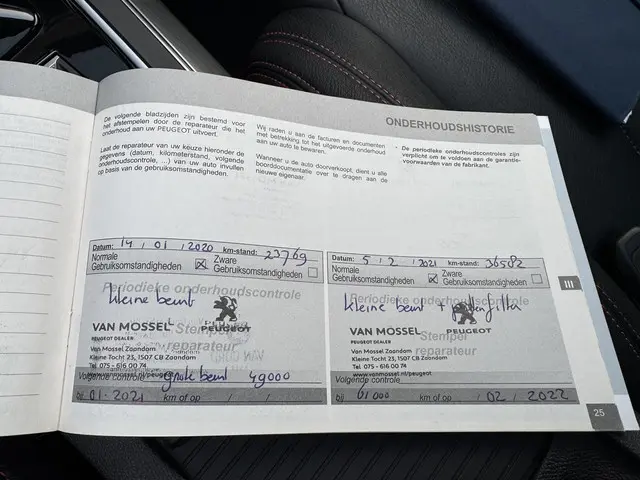 ONDERHOUDSHISTORIE
De volgende bladzijden zijn bestemd voor
het afstempelen door de reparateur die het
onderhoud aan uw PEUGEOT uitvoert.
Laat de reparateur van uw keuze hieronder de
gegevens (datum, kilometerstand, volgende
onderhoudscontrole, ...) van uw auto invullen
op basis van de gebruiksomstandigheden.
Wij raden u aan de facturen en documenten
met betrekking tot het uitgevoerde onderhoud
aan uw auto te bewaren.
Wanneer u de auto doorverkoopt, dient u alle
boorddocumentatie over te dragen aan de
nieuwe eigenaar.
* De periodieke onderhoudscontroles zijn
verplicht om te voldoen aan de garantie-
voorwaarden van de fabrikant.
Datum: 14 / 01 / 2020 km-stand: 23769
Normale
Gebruiksomstandigheden
Zware
Gebruiksomstandigheden
Periodieke onderhoudscontrole
kleine beurt
VAN MOSSEL
PEUGEOT
PEUGEOT DEALER
Stempel
reparateur
Van Mossel Zaandam
Kleine Tocht 23, 1507 CB Zaandam
Tel 075 - 616 00 74
www.vanmossel.nl/peugeot
Volgende controle grote beurt 49000
bij 01-2021 km of op / /
Datum: 5 / 2 / 2021 km-stand: 36582
Normale
Gebruiksomstandigheden
Zware
Gebruiksomstandigheden
Periodieke onderhoudscontrole
kleine beurt +
VAN MOSSEL
PEUGEOT
PEUGEOT DEALER
Stempel
reparateur
Van Mossel Zaandam
Kleine Tocht 23, 1507 CB Zaandam
Tel 075 - 616 00 74
www.vanmossel.nl/peugeot
Volgende controle
bij 61000 km of op / 02 / 2022
III
25